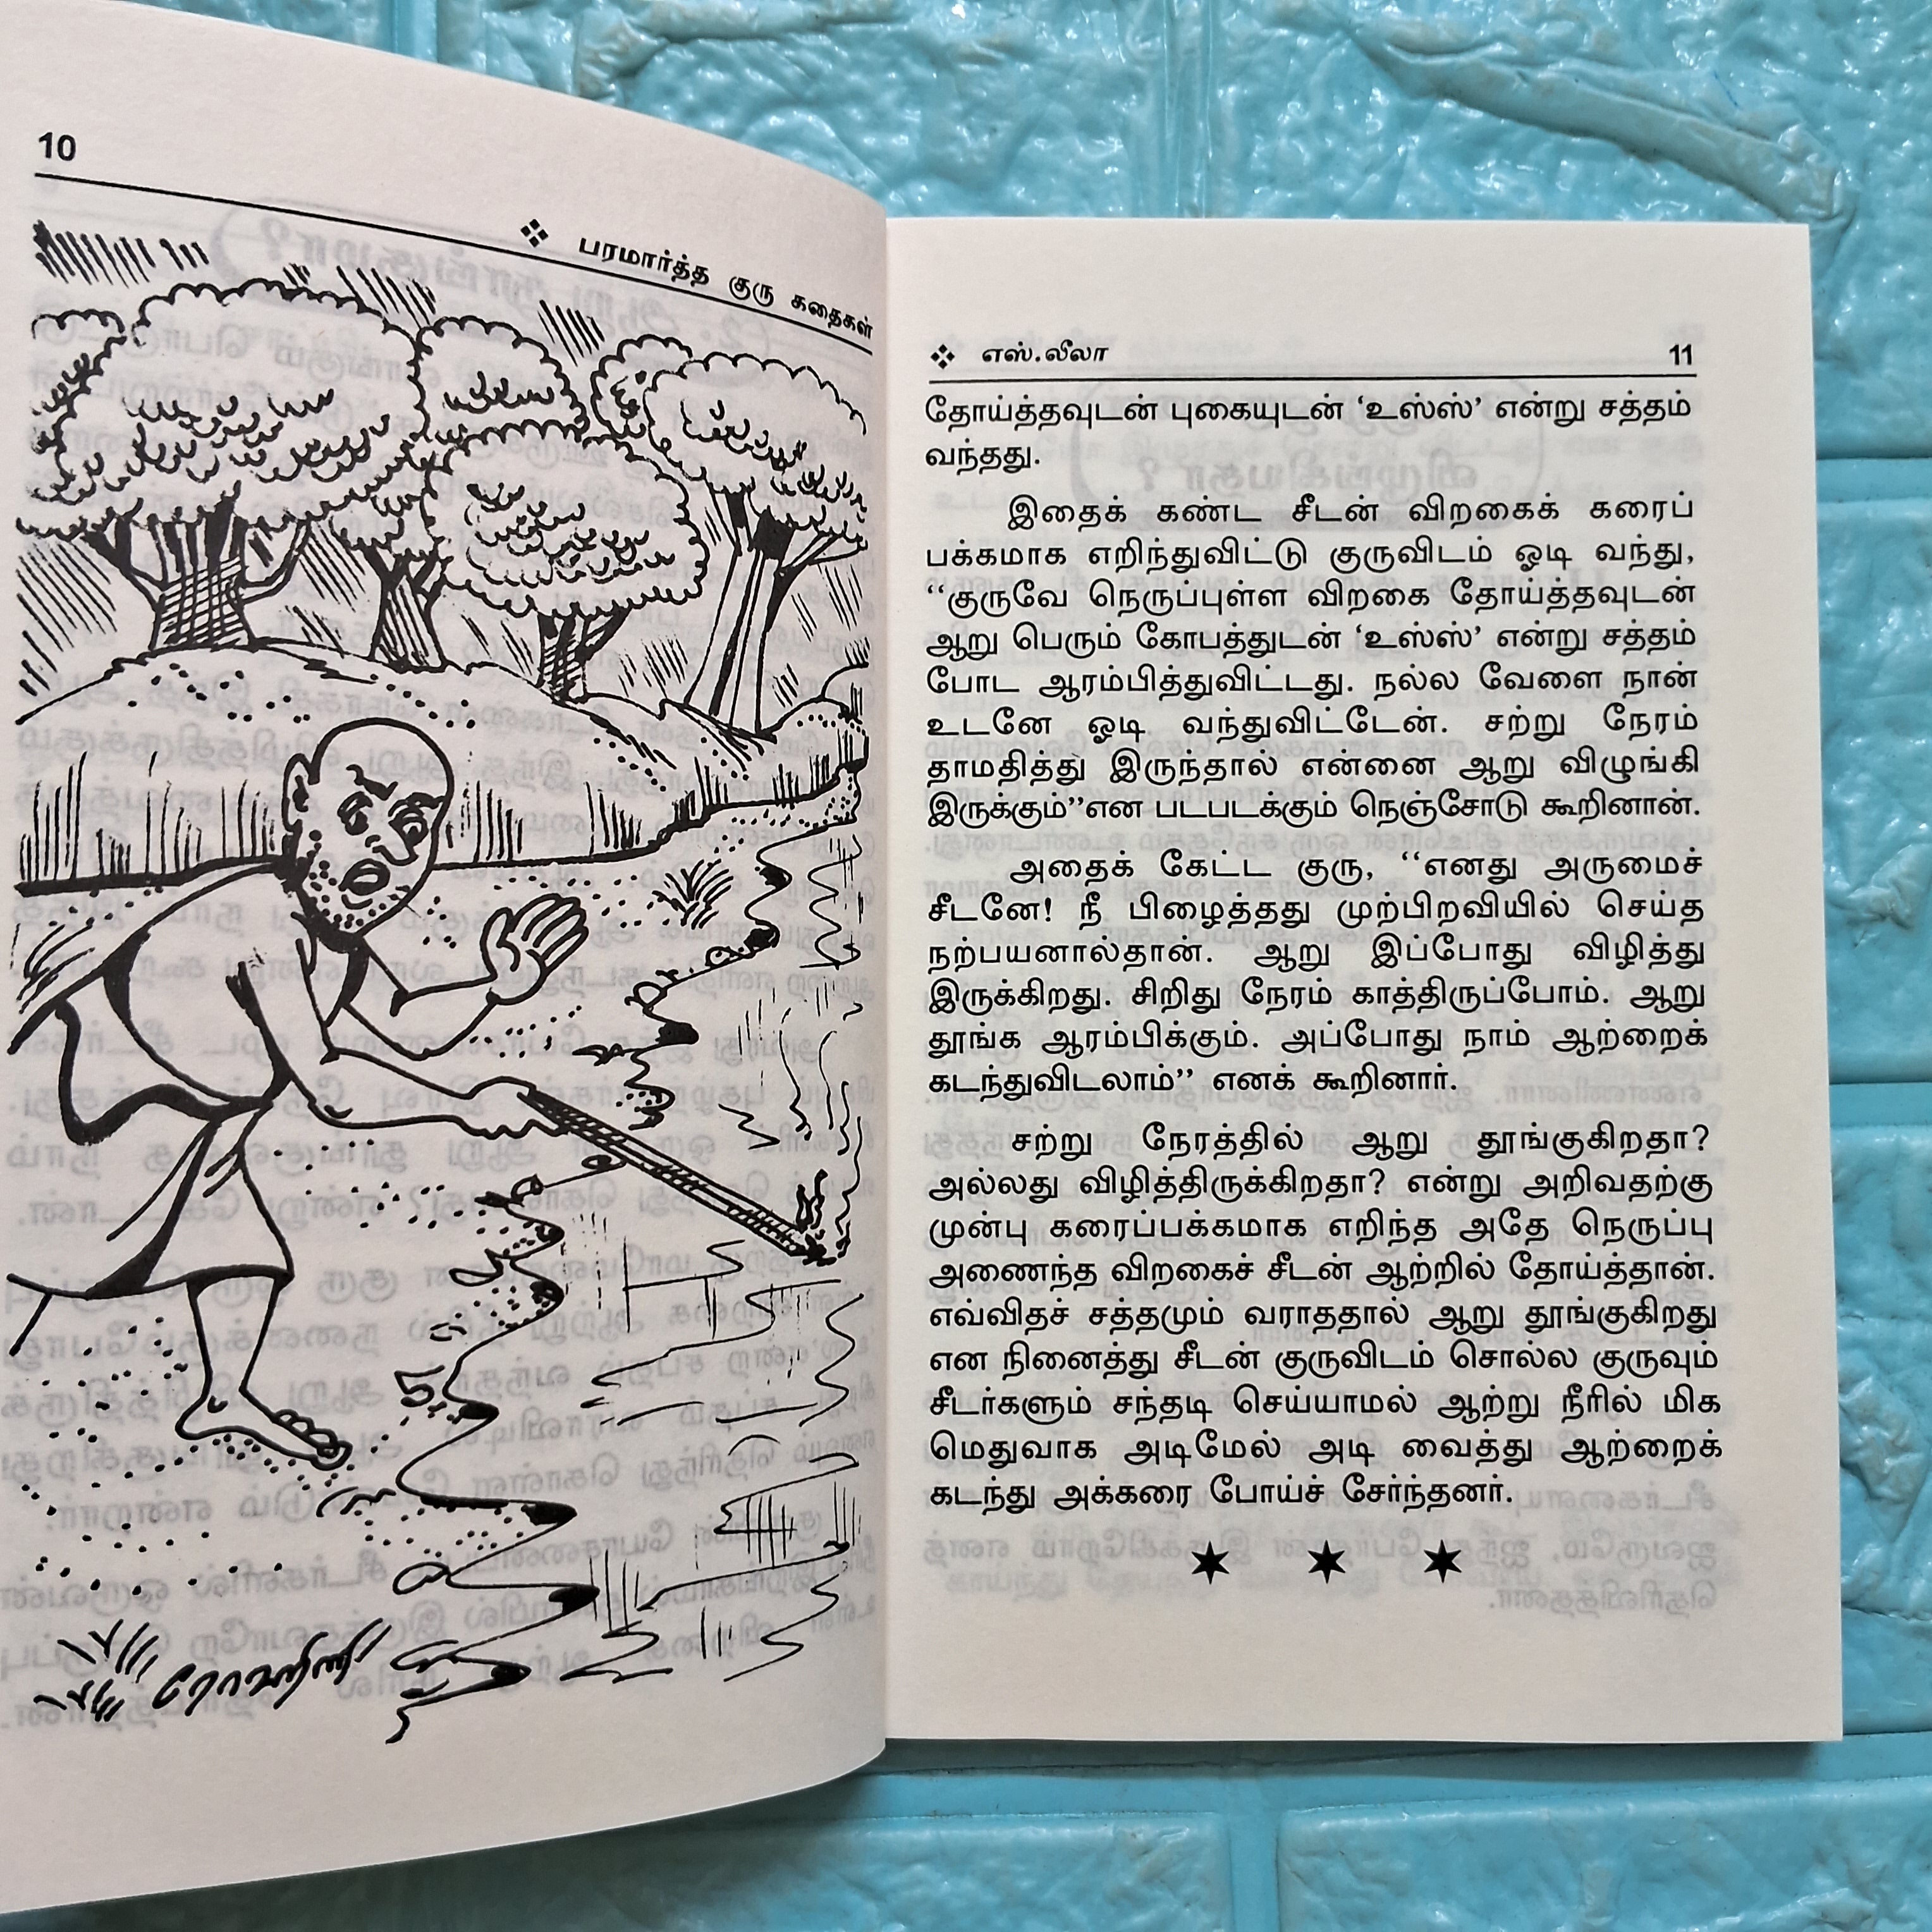 10
❖ பரமார்த்த குரு கதைகள்
ரோஹிணி
❖ எஸ்.லீலா 11
தோய்த்தவுடன் புகையுடன் ‘உஸ்ஸ்’ என்று சத்தம்
வந்தது.
இதைக் கண்ட சீடன் விறகைக் கரைப்
பக்கமாக எறிந்துவிட்டு குருவிடம் ஓடி வந்து,
‘‘குருவே நெருப்புள்ள விறகை தோய்த்தவுடன்
ஆறு பெரும் கோபத்துடன் ‘உஸ்ஸ்’ என்று சத்தம்
போட ஆரம்பித்துவிட்டது. நல்ல வேளை நான்
உடனே ஓடி வந்துவிட்டேன். சற்று நேரம்
தாமதித்து இருந்தால் என்னை ஆறு விழுங்கி
இருக்கும்’’என படபடக்கும் நெஞ்சோடு கூறினான்.
அதைக் கேட்ட குரு, ‘‘எனது அருமைச்
சீடனே! நீ பிழைத்தது முற்பிறவியில் செய்த
நற்பயனால்தான். ஆறு இப்போது விழித்து
இருக்கிறது. சிறிது நேரம் காத்திருப்போம். ஆறு
தூங்க ஆரம்பிக்கும். அப்போது நாம் ஆற்றைக்
கடந்துவிடலாம்’’ எனக் கூறினார்.
சற்று நேரத்தில் ஆறு தூங்குகிறதா?
அல்லது விழித்திருக்கிறதா? என்று அறிவதற்கு
முன்பு கரைப்பக்கமாக எறிந்த அதே நெருப்பு
அணைந்த விறகைச் சீடன் ஆற்றில் தோய்த்தான்.
எவ்விதச் சத்தமும் வராததால் ஆறு தூங்குகிறது
என நினைத்து சீடன் குருவிடம் சொல்ல குருவும்
சீடர்களும் சந்தடி செய்யாமல் ஆற்று நீரில் மிக
மெதுவாக அடிமேல் அடி வைத்து ஆற்றைக்
கடந்து அக்கரை போய்ச் சேர்ந்தனர்.